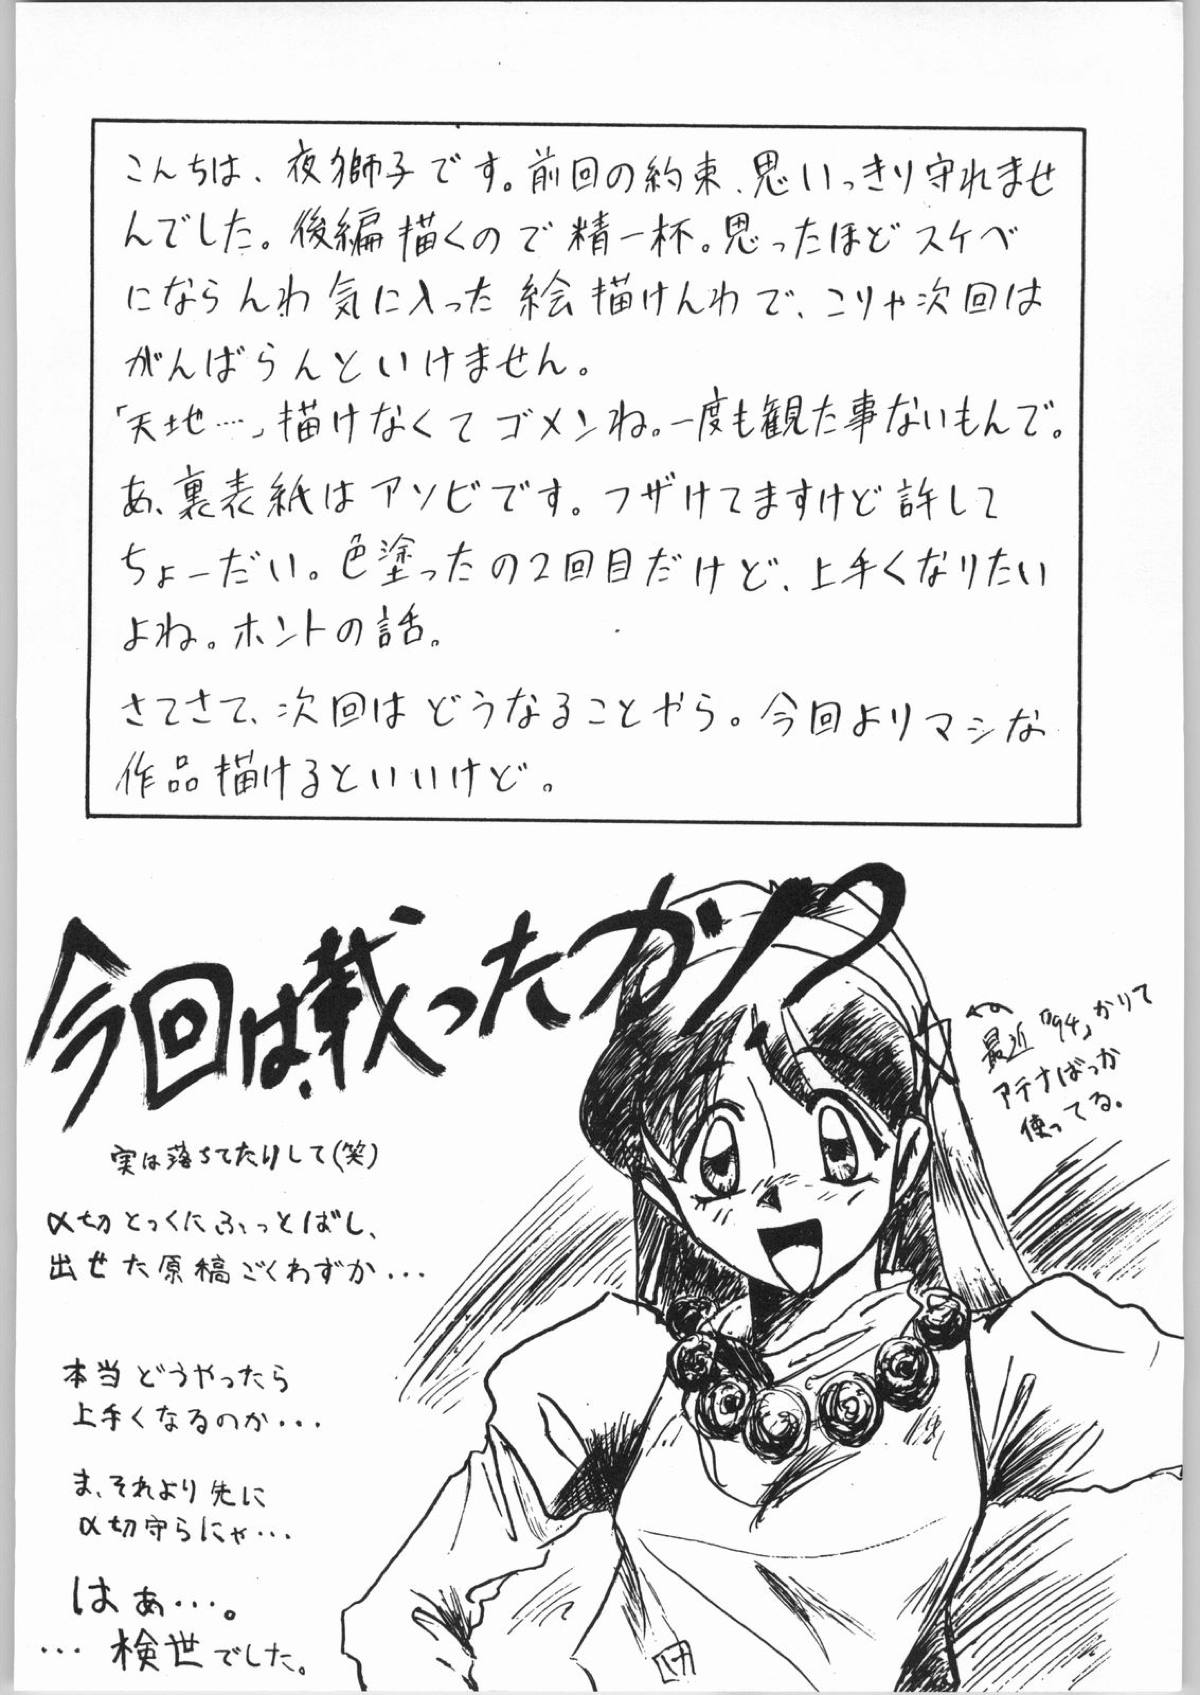 こんちは、夜獅子です。前回の約束、思いっきり守れませ
んでした。後編描くので精一杯。思ったほどスケベ
にならんわ気に入った絵描けんわで、こりゃ次回は
がんばらんといけません。
「天地…」描けなくてゴメンね。一度も観た事ないもんで。
あ、裏表紙はアソビです。フザけてますけど許して
ちょーだい。色塗ったの2回目だけど、上手くなりたい
よね。ホントの話。
さてさて、次回はどうなることやら。今回よりマシな
作品描けるといいけど。
今回は、載ったか!?
最近「'94」かりて
アテナばっか
使ってる。
実は落ちてたりして(笑)
〆切とっくにぶっとばし、
出せた原稿ごくわずか...
本当どうやったら
上手くなるのか...
ま、それより先に
〆切守らにゃ...
はぁ…。
…検世でした。